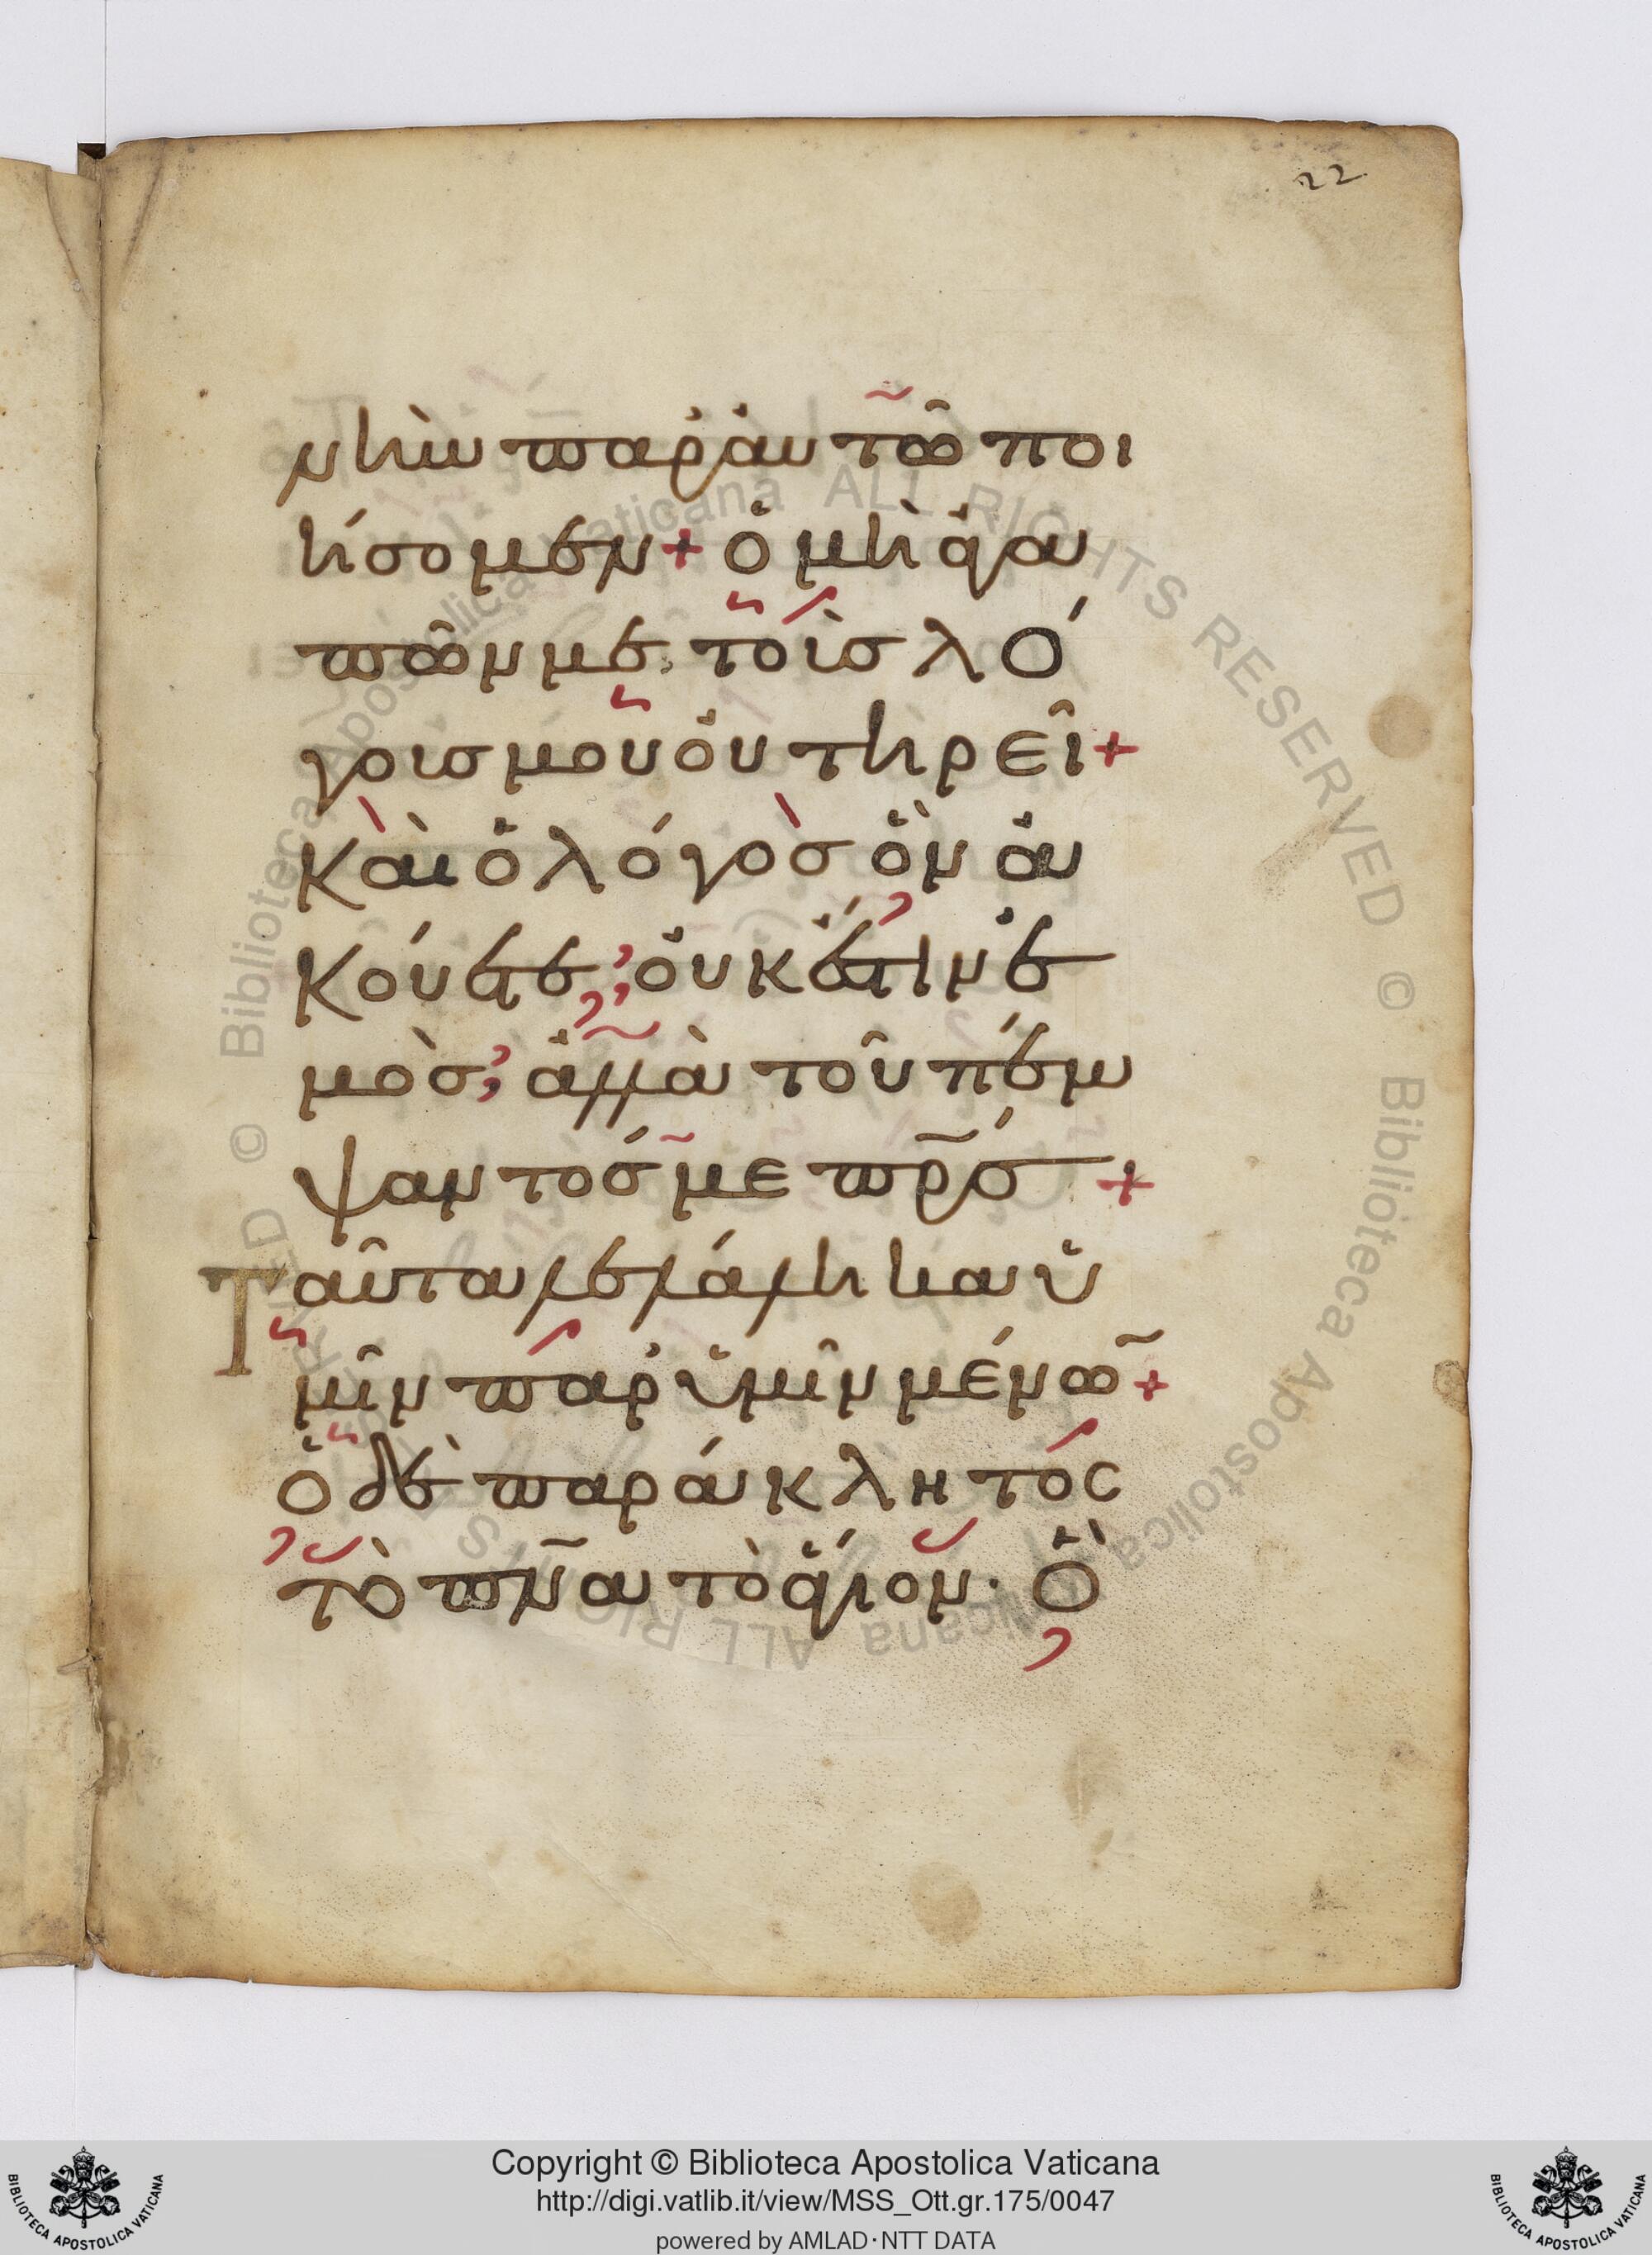 22
νὴν παρ' αὐτῶ ποι
ήσομεν + ὁ μὴ ἀγα
πῶν με. τοὺς λό
γους μου οὐ τηρεῖ +
Καὶ ὁ λόγος ὃν ἀ
κούετε, οὐκ ἔστιν ἐ
μὸς, ἀλλὰ τοῦ πέμ
ψαντός με πρσ +
Ταῦτα λελάληκα ὑ
μῖν παρ' ὑμῖν μένων +
ὁ δὲ παράκλητος
τὸ πνα τὸ ἅγιον. ὃ
© Biblioteca Apostolica Vaticana ALL RIGHTS RESERVED © Biblioteca Apostolica Vaticana ALL RIGHTS RESERVED
Copyright © Biblioteca Apostolica Vaticana
http://digi.vatlib.it/view/MSS_Ott.gr.175/0047
powered by AMLAD·NTT DATA
BIBLIOTECA APOSTOLICA VATICANA
BIBLIOTECA APOSTOLICA VATICANA